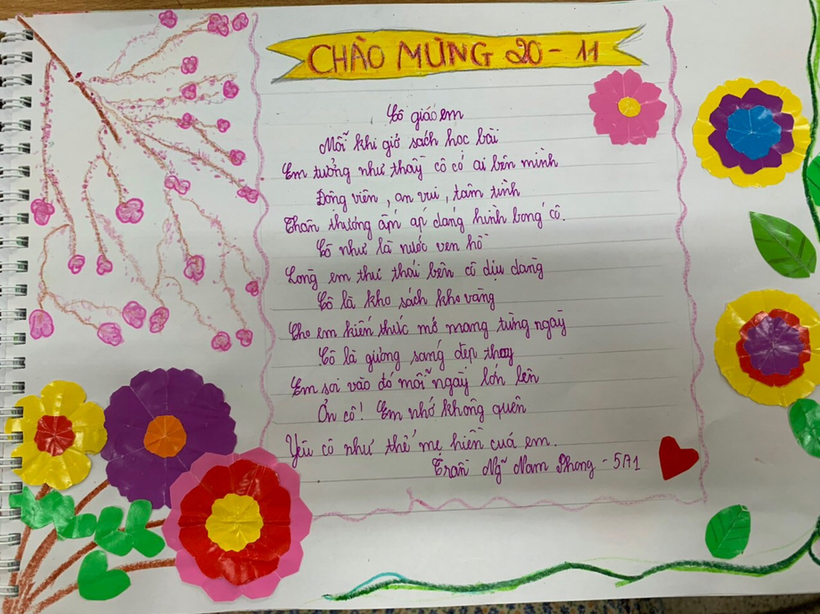 CHÀO MỪNG 20 - 11
Cô giáo em
Mỗi khi giở sách học bài
Em tưởng như thầy cô có ai bên mình
Động viên, an vui, tâm tình
Thân thương ấm áp dáng hình bóng cô.
Cô như là nước ven hồ
Lòng em thư thái bên cô dịu dàng
Cô là kho sách kho vàng
Cho em kiến thức mở mang từng ngày
Cô là gương sáng đẹp thay
Em soi vào đó mỗi ngày lớn lên
Ơn cô! Em nhớ không quên
Yêu cô như thể mẹ hiền của em.
Trần Ngũ Nam Phong - 5A1